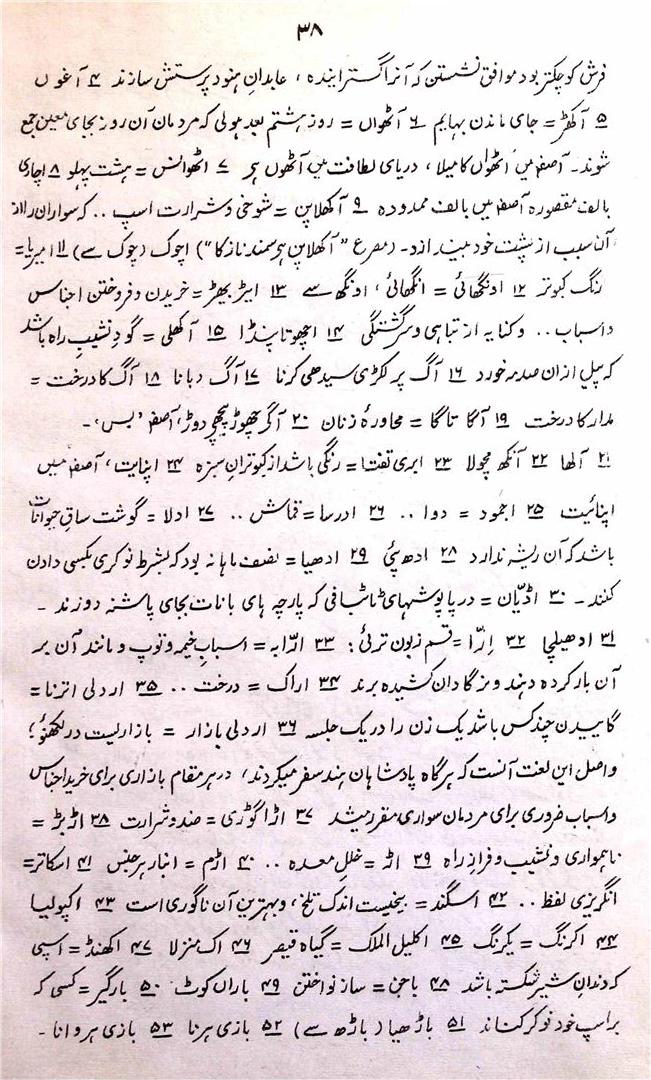 ۳۸
فرش کوچکتر بود موافق نشستن که آنرا گسترانیده، عابدانِ ہنود پرستش سازند ۴ آغوں
۵ آکھڑ = جای ماندن بہایم ۶ آٹھواں = روز ہشتم بعد ہولی کہ مردمان آن روز بجای معین جمع
شوند۔ آصفہ میں اٹھواں کا میلا، دریای لطافت میں آٹھوں ہے ۷ اٹھوانس = ہشت پہلو ۸ اچاری
بالف مقصورہ آصفہ میں بالف ممدودہ ۹ آکھلاپن = شوخی و شرارت اسپ .. کہ سواران را از
آن سبب از پشت خود میندازد۔ (مصرع "آکھلاپن ہے سمند ناز کا") اچوک (چوک سے) ۱۱ امیریا =
رنگ کبوتر ۱۲ ادنگھائی = انگھائی، اونگھ سے ۱۳ ایڑ بھیڑ = خریدن و فروختن اجناس
و اسباب .. و کنایہ از تباہی و سرگشتگی ۱۴ اچھوتا پنڈا ۱۵ آکھلی = گودِ نشیبِ راہ باشد
کہ پیل از ان صدمہ خورد ۱۶ آگ پر لکڑی سیدھی کرنا ۱۷ آگ دبانا ۱۸ آگ کا درخت =
مدار کا درخت ۱۹ آگا تاگا = محاورۂ زنان ۲۰ آگے چھوڑ پیچھے دوڑ، آصفہ 'بس'۔
۲۱ آلھا ۲۲ آنکھ مچولا ۲۳ ابری تفتا = رنگی باشد از کبوترانِ سبزہ ۲۴ اپنایت، آصفہ میں
اپنائیت ۲۵ اجمود = دوا .. ۲۶ ادرسا = قماش .. ۲۷ ادلا = گوشت ساقِ حیوانات
باشد کہ آن ریشہ ندارد ۲۸ ادھ پئی ۲۹ ادھیا = نصف ماہانہ بود کہ بشرط نوکری بکسی دادن
کنند۔ ۳۰ اڈیّان = در پاپوشہای ٹاٹ بافی کہ پارچہ ہای بانات بجای پاشنہ دوزند۔
۳۱ ادھیلچا ۳۲ اِرّا = قسم زبون تریٔ؛ ۳۳ ارّابہ = اسبابِ خیمہ و توپ و مانند آن بر
آن بار کردہ دہند و نرگاوان کشیدہ برند ۳۴ اراک = درخت .. ۳۵ اردلی اترنا =
گاییدن چند کس باشد یک زن را در یک جلسہ ۳۶ اردلی بازار = بازاریست در لکھنؤ؛
و اصل این لغت آنست کہ ہر گاہ پادشاہان ہند سفر میکردند، در ہر مقام بازاری برای خرید اجناس
و اسباب ضروری برای مردمان سواری مقرر میشد ۳۷ اڑا گوڑی = ضد و شرارت ۳۸ اڑبڑ =
ناہمواری و نشیب و فراز راہ ۳۹ اڑہ = غلل معدہ .. ۴۰ اڑم = انبار ہر جنس ۴۱ اسکاتر =
انگریزی لفظ .. ۴۲ اسگند = بیخیست اندک تلخ، و بہترین آن ناگوری است ۴۳ اکپولیا
۴۴ اکرنگ = یکرنگ ۴۵ اکلیل الملاک = گیاہ قیصر ۴۶ اک منزلا ۴۷ اکھنڈ = اسپی
کہ دندانِ شیر شکستہ باشد ۴۸ باجن = ساز نواختن ۴۹ باراں کوٹ ۵۰ بارگیر = کسی کہ
بر اسپ خود نوکر کناند ۵۱ باڑھیا (باڑھ سے) ۵۲ بازی ہرنا ۵۳ بازی ہروانا۔